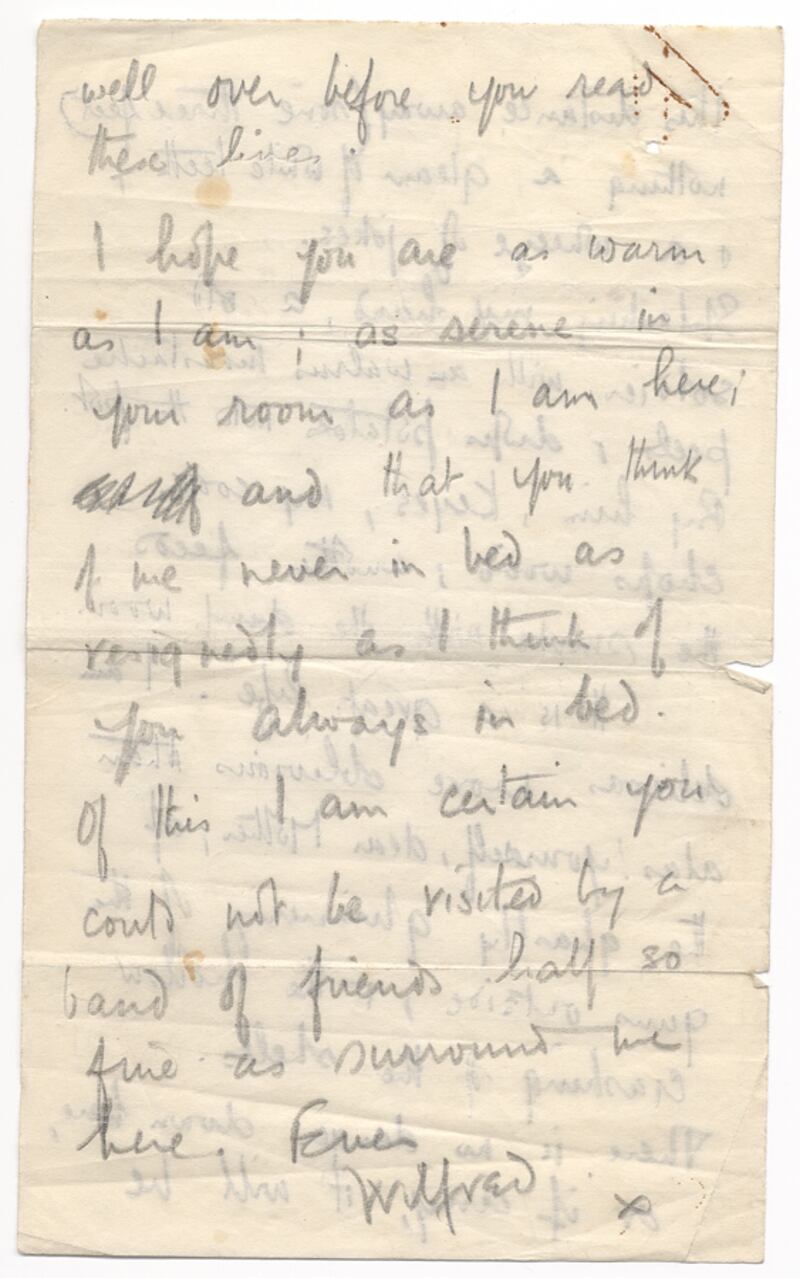 well over before you read
these lines.
I hope you are as warm
as I am; as serene in
your room as I am here;
and that you think
of me never in bed as
resignedly as I think of
you always in bed.
Of this I am certain you
could not be visited by a
band of friends half so
fine as surround me
here. Ever
Wilfred x